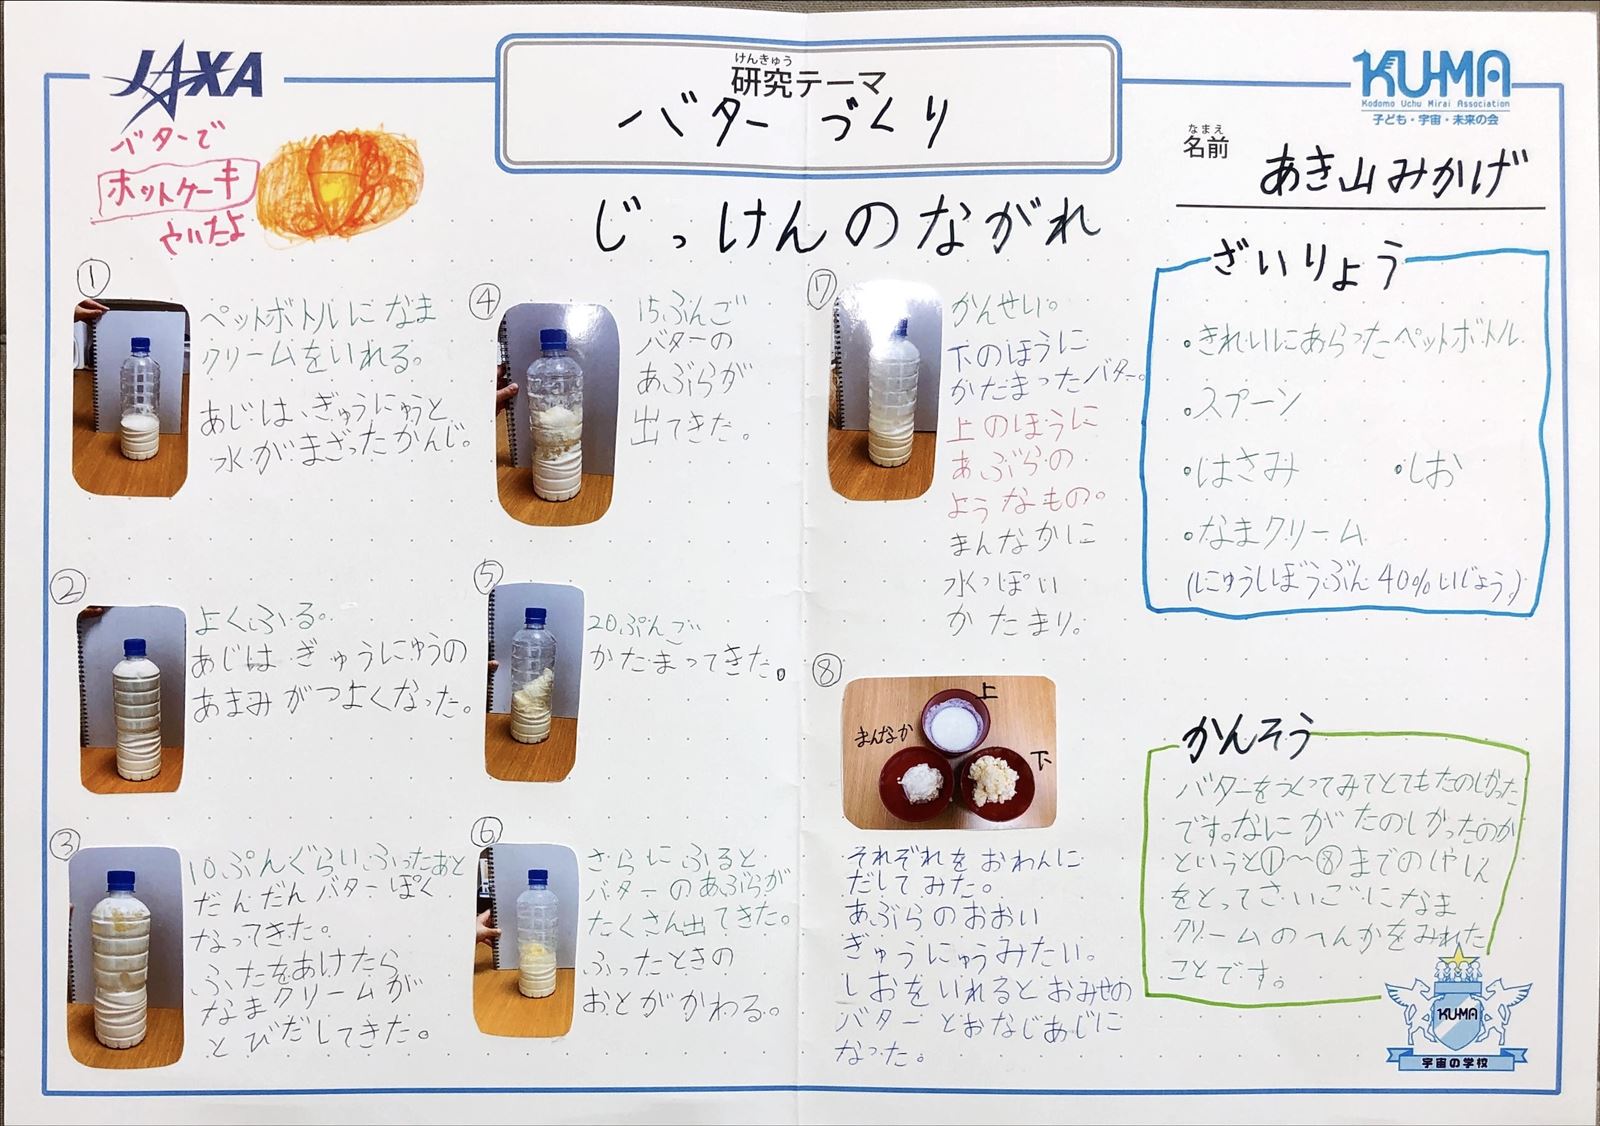 JAXA
けんきゅう
研究テーマ
バターづくり
KU-MA
Kodomo Uchu Mirai Association
子ども・宇宙・未来の会
なまえ
名前
あき山みかげ
バターで
ホットケーキ
やいたよ
じっけんのながれ
①
ペットボトルになま
クリームをいれる。
あじは、ぎゅうにゅうと
水がまざったかんじ。
②
よくふる。
あじはぎゅうにゅうの
あまみがつよくなった。
③
10ぷんぐらいふったあと
だんだんバターぽく
なってきた。
ふたをあけたら
なまクリームが
とびだしてきた。
④
15ふんご
バターの
あぶらが
出てきた。
⑤
20ぷんご
かたまってきた。
⑥
さらにふると
バターのあぶらが
たくさん出てきた。
ふったときの
おとがかわる。
⑦
かんせい。
下のほうに
かたまったバター。
上のほうに
あぶらの
ようなもの。
まんなかに
水っぽい
かたまり。
⑧
上
まんなか
下
それぞれをおわんに
だしてみた。
あぶらのおおい
ぎゅうにゅうみたい。
しおをいれるとおみせの
バターとおなじあじに
なった。
ざいりょう
・きれいにあらったペットボトル
・スプーン
・はさみ ・しお
・なまクリーム
(にゅうしぼうぶん40%いじょう)
かんそう
バターをつくってみてとてもたのしかった
です。なにがたのしかったのか
というと①〜⑧までのしゃしん
をとってさいごになま
クリームのへんかをみれた
ことです。
KU-MA
宇宙の学校